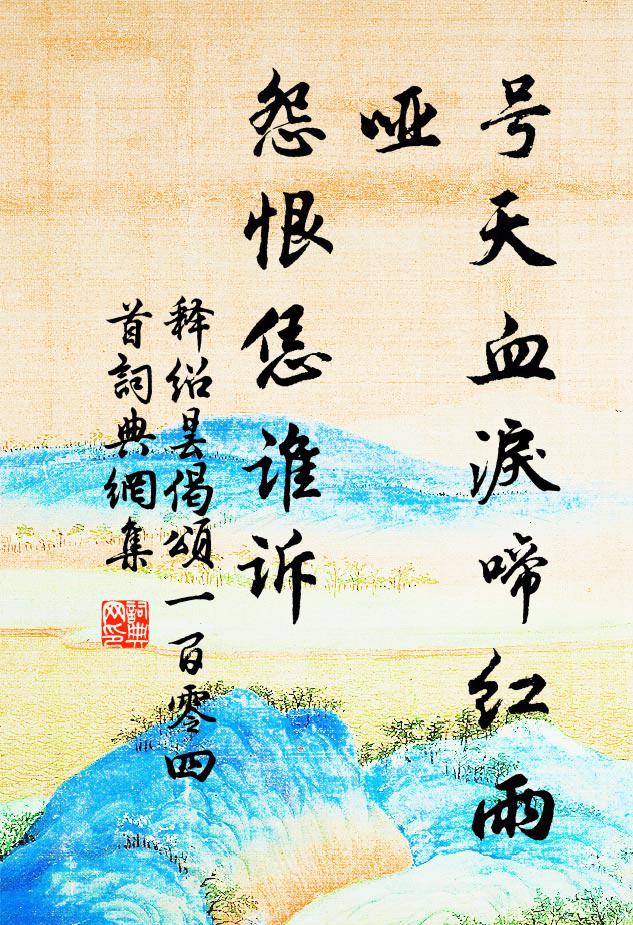 号天血淚啼红雨
哑
怨恨恁谁诉
释绍昙偈頌一百零四
首詞典網集
詞典
网印